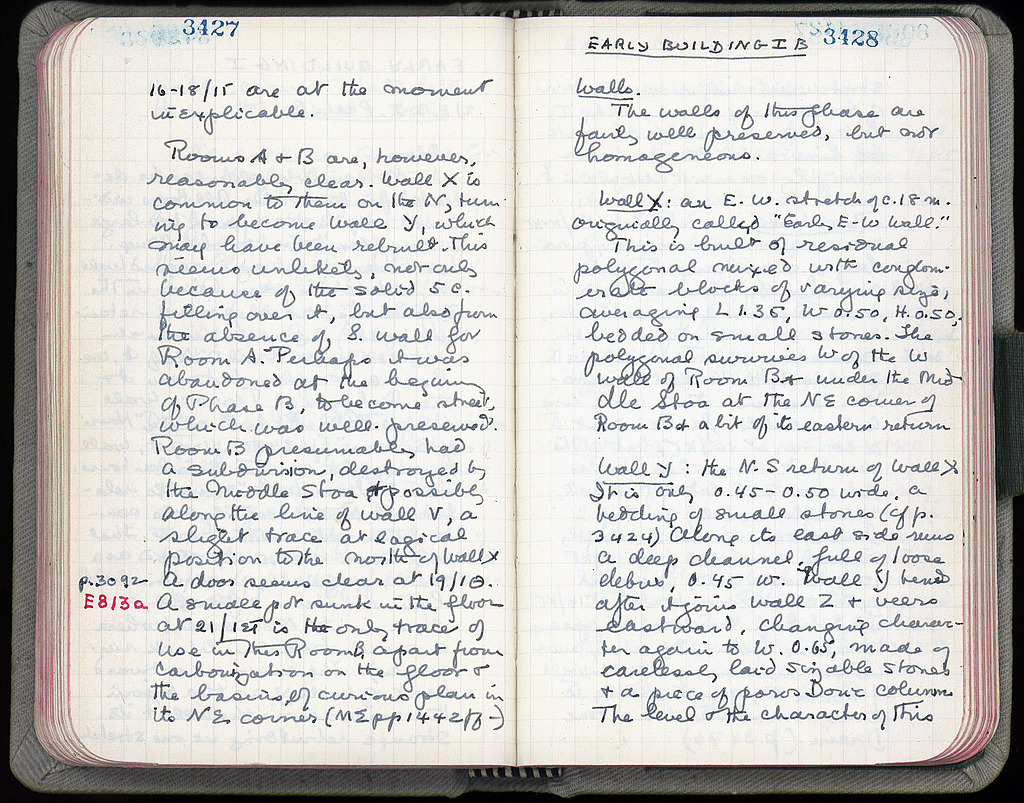 3427
16-18/15 are at the moment
inexplicable.
Rooms A + B are, however,
reasonably clear. Wall X is
common to them on the N, turn-
ing to become wall Y, which
may have been rebuilt. This
seems unlikely, not only
because of the solid 5 c.
filling over it, but also from
the absence of, S. wall for
Room A. Perhaps it was
abandoned at the begining
of Phase B, to become street,
which was well preserved.
Room B presumably had
a subdivision, destroyed by
the Middle Stoa & possibly
along the line of wall V, a
slight trace at logical
position to the north of wall X
p.3092 A door seems clear at 19/1Θ.
E8/3a A small pot sunk in the floor
at 21/1ΣΤ is the only trace of
use in this Room B, apart from
carbonization on the floor &
the basins, of curious plan in
its NE corner (MΣ pp 1442/ff -)
3428
EARLY BUILDING I B
Walls.
The walls of this phase are
fairly well preserved, but not
homogeneous.
Wall X: an E.W. stretch of c.18 m.
originally called "Early E-W Wall."
This is built of residual
polygonal mixed with conglom-
erate blocks of varying size,
averaging L 1.35, W 0.50, H. 0.50,
bedded on small stones. The
polygonal survives W of the W
wall of Room B & under the Mid
dle Stoa at the NE corner of
Room B & a bit of its eastern return
Wall Y: the N.S return of Wall X
It is only 0.45-0.50 wide, a
bedding of small stones (cf p.
3424) Along its east side runs
a deep channel full of loose
debris, 0.45 W. Wall Y bends
after it joins wall Z + veers
eastward, changing charac-
ter again to W. 0.65, made of
carelessly laid sizable stones
+ a piece of poros Doric column
The level & the character of this